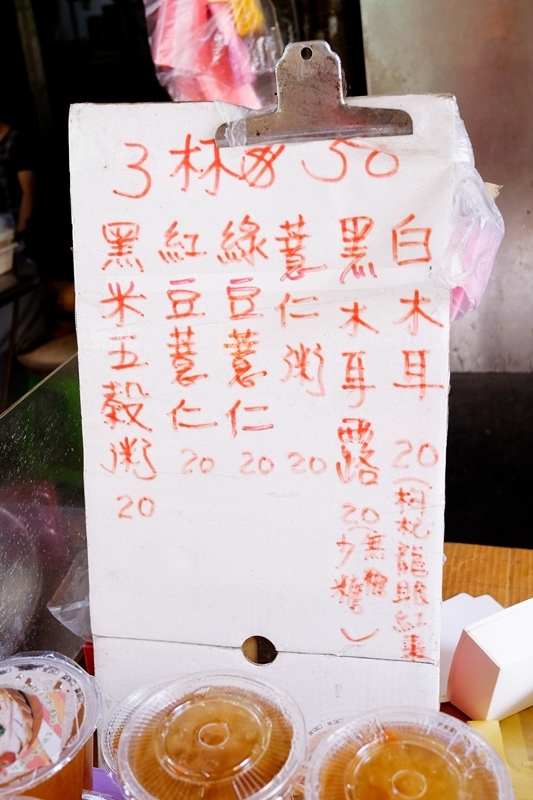 3杯50
白木耳20(枸杞龍眼紅棗
黑木耳露20(無糖少糖)
薏仁粥20
綠豆薏仁20
紅豆薏仁20
黑米五穀粥20